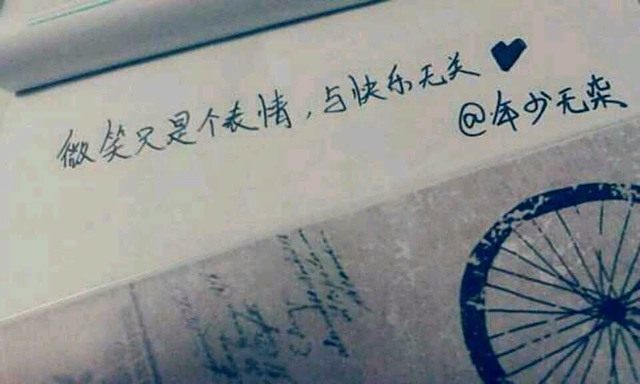 微笑只是个表情，与快乐无关♥
@年少无染